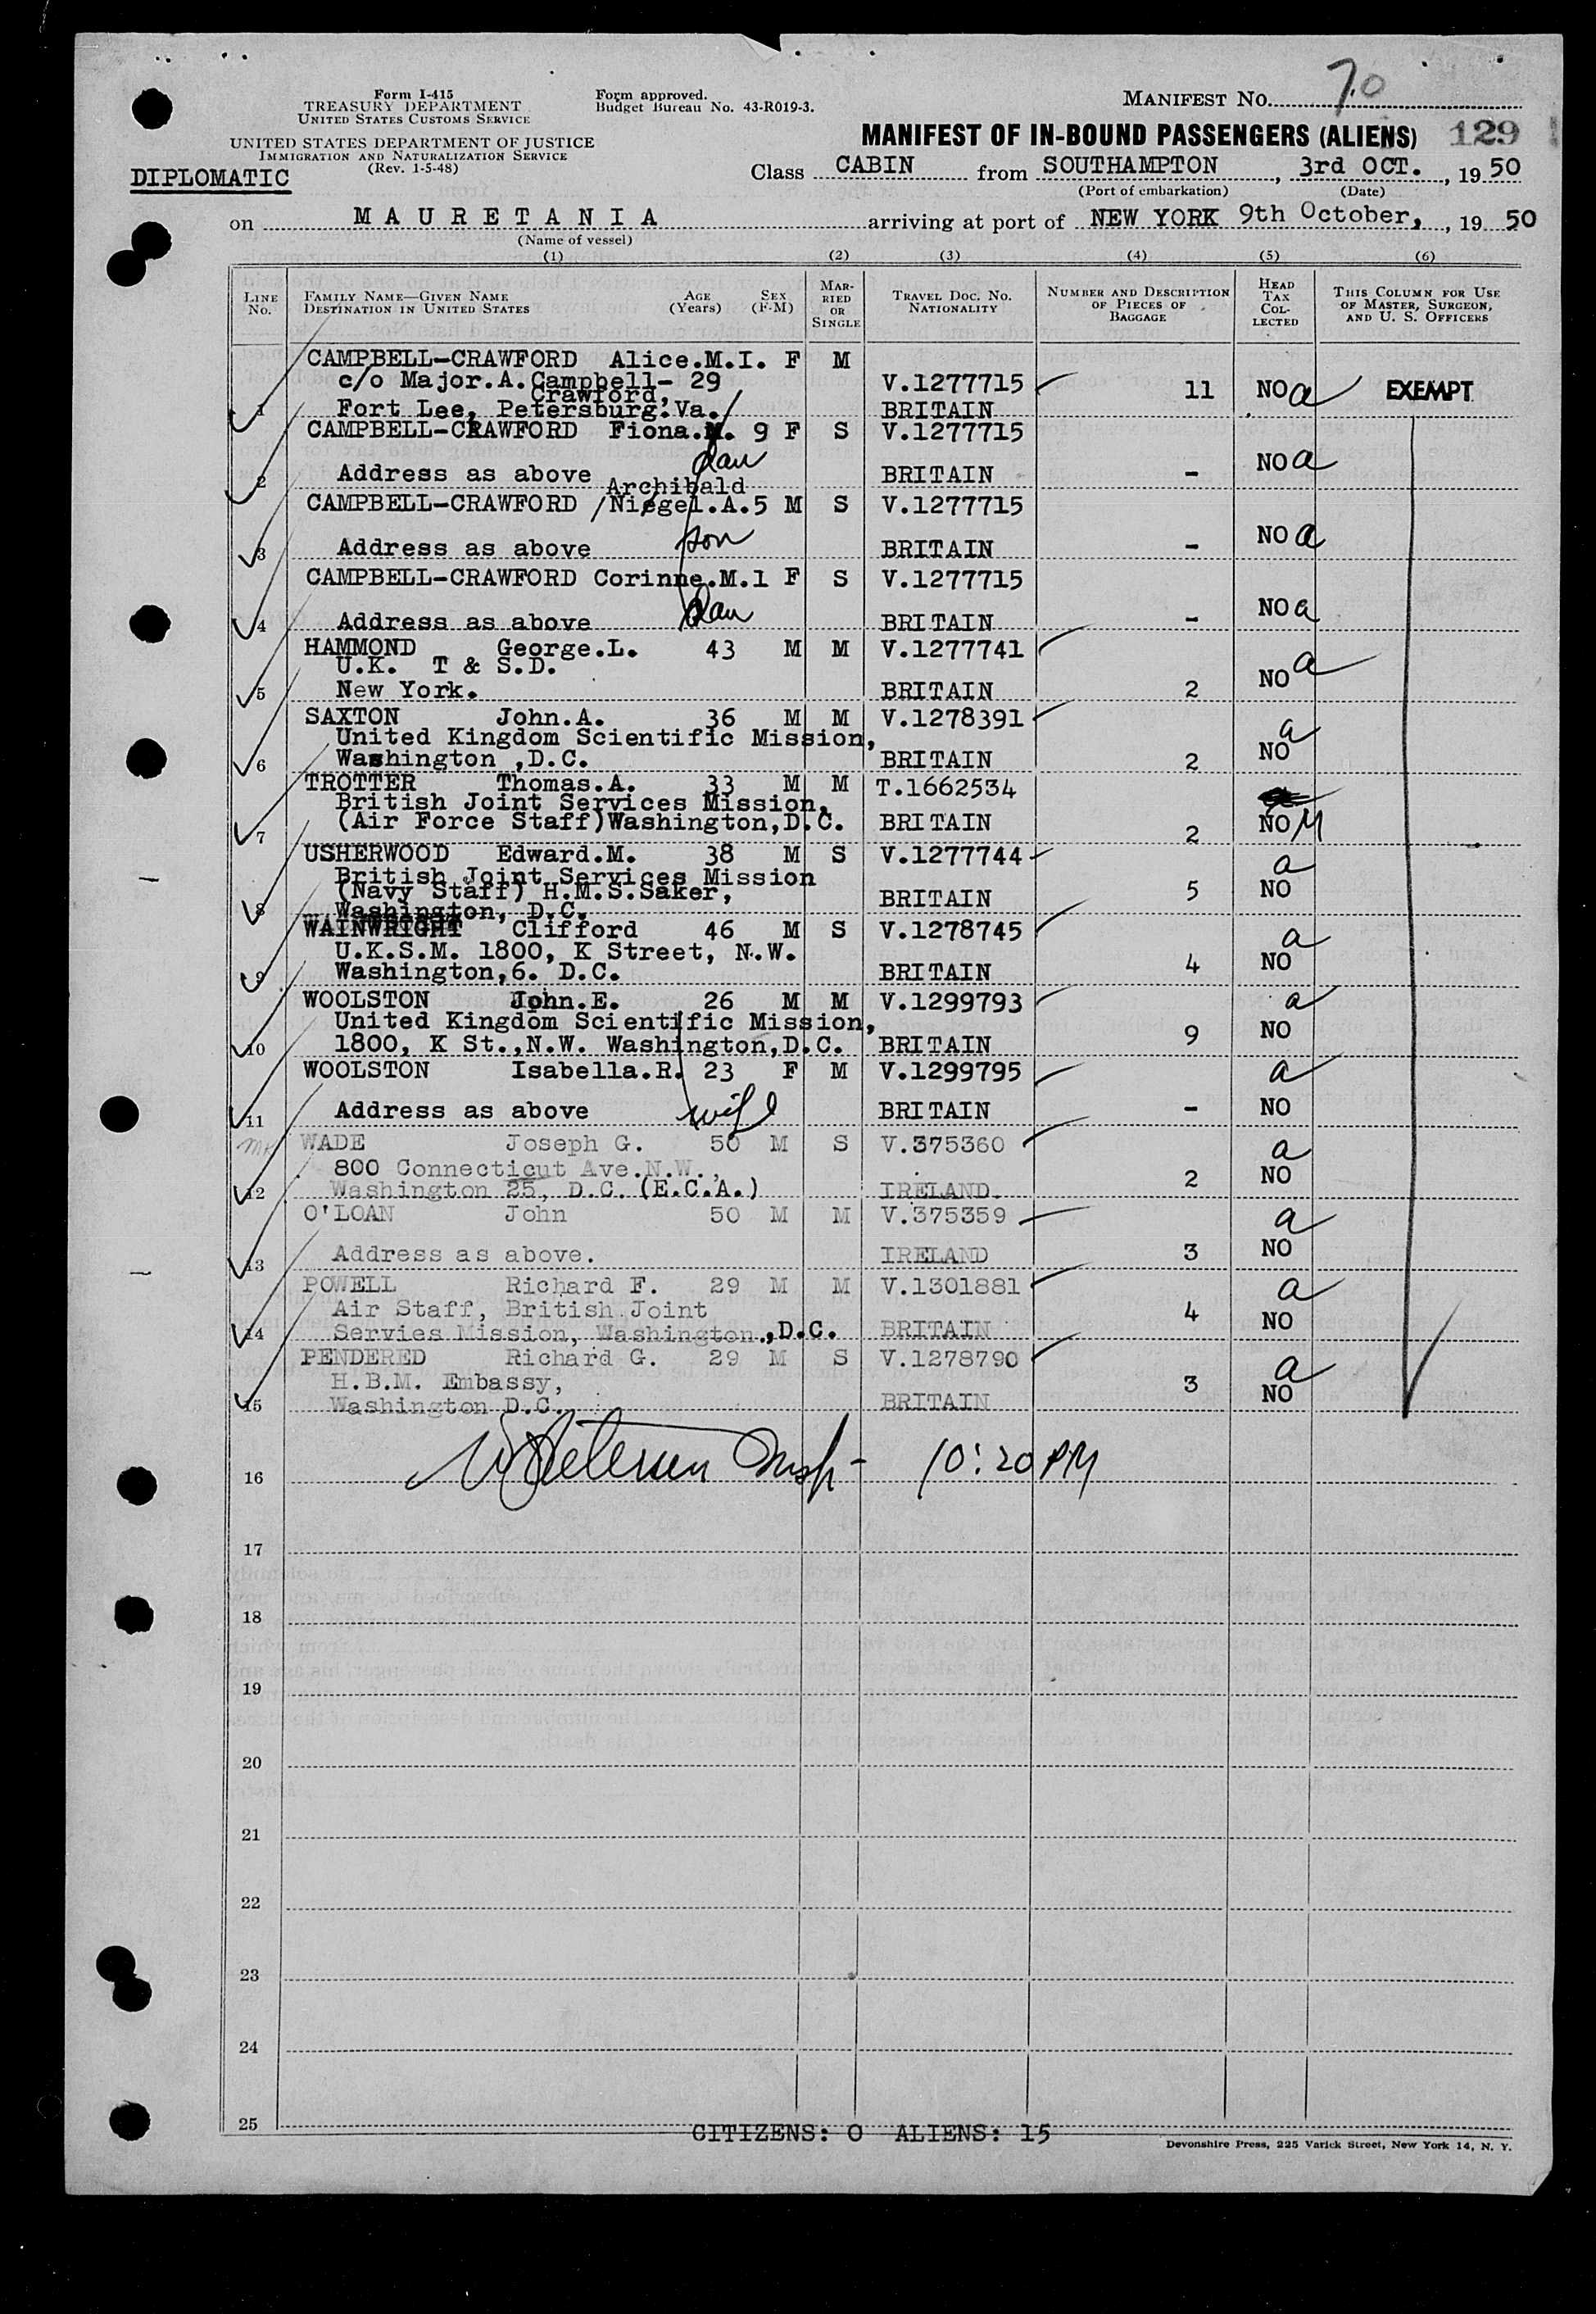 Form I-415
TREASURY DEPARTMENT
UNITED STATES CUSTOMS SERVICE
UNITED STATES DEPARTMENT OF JUSTICE
IMMIGRATION AND NATURALIZATION SERVICE
(Rev. 1-5-48)
DIPLOMATIC
Form approved.
Budget Bureau No. 43-R019-3.
MANIFEST NO. 70
MANIFEST OF IN-BOUND PASSENGERS (ALIENS) 129
Class CABIN from SOUTHAMPTON, 3rd OCT., 1950
(Port of embarkation) (Date)
on MAURETANIA arriving at port of NEW YORK 9th October, , 1950
(Name of vessel)
(1) (2) (3) (4) (5) (6)
LINE NO. FAMILY NAME—GIVEN NAME DESTINATION IN UNITED STATES AGE (Years) SEX (F-M) MARRIED OR SINGLE TRAVEL DOC. NO. NATIONALITY NUMBER AND DESCRIPTION OF PIECES OF BAGGAGE HEAD TAX COLLECTED THIS COLUMN FOR USE OF MASTER, SURGEON, AND U. S. OFFICERS
CAMPBELL-CRAWFORD Alice.M.I. F M
c/o Major.A.Campbell- 29 V.1277715 11 NO a EXEMPT
Crawford,
1 Fort Lee, Petersburg.Va. BRITAIN
CAMPBELL-CRAWFORD Fiona.M. 9 F S V.1277715
dau NO a
2 Address as above BRITAIN -
Archibald
CAMPBELL-CRAWFORD /Niegel.A.5 M S V.1277715
son NO a
3 Address as above BRITAIN -
CAMPBELL-CRAWFORD Corinne.M.1 F S V.1277715
dau NO a
4 Address as above BRITAIN -
HAMMOND George.L. 43 M M V.1277741
U.K. T & S.D. NO a
5 New York. BRITAIN 2
SAXTON John.A. 36 M M V.1278391
United Kingdom Scientific Mission, NO a
6 Washington ,D.C. BRITAIN 2
TROTTER Thomas.A. 33 M M T.1662534
British Joint Services Mission,
7 (Air Force Staff)Washington,D.C. BRITAIN 2 NO M
USHERWOOD Edward.M. 38 M S V.1277744 a
British Joint Services Mission
(Navy Staff) H.M.S.Saker, BRITAIN 5 NO
8 Washington, D.C.
WAINWRIGHT Clifford 46 M S V.1278745 a
U.K.S.M. 1800, K Street, N.W.
9 Washington,6. D.C. BRITAIN 4 NO
WOOLSTON John.E. 26 M M V.1299793 a
United Kingdom Scientific Mission,
10 1800, K St.,N.W. Washington,D.C. BRITAIN 9 NO
WOOLSTON Isabella.R. 23 F M V.1299795 a
wife
11 Address as above BRITAIN - NO
WADE Joseph G. 50 M S V.375360 a
800 Connecticut Ave.N.W.,
12 Washington 25, D.C. (E.C.A.) IRELAND. 2 NO
O'LOAN John 50 M M V.375359 a
13 Address as above. IRELAND 3 NO
POWELL Richard F. 29 M M V.1301881 a
Air Staff, British Joint
14 Servies Mission, Washington.,D.C. BRITAIN 4 NO
PENDERED Richard G. 29 M S V.1278790 a
H.B.M. Embassy,
15 Washington D.C. BRITAIN 3 NO
16 10:20 PM
17
18
19
20
21
22
23
24
25
CITIZENS: 0 ALIENS: 15
Devonshire Press, 225 Varick Street, New York 14, N. Y.